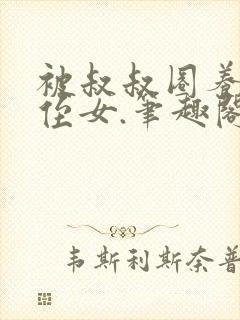 被叔叔圈养
侄女.笔趣阁
韦斯利斯奈普